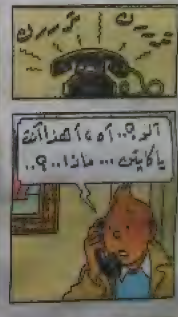 تررررن
تررررن
آلو؟.. آه، أهذا أنت
يا كابتن... ماذا..؟..